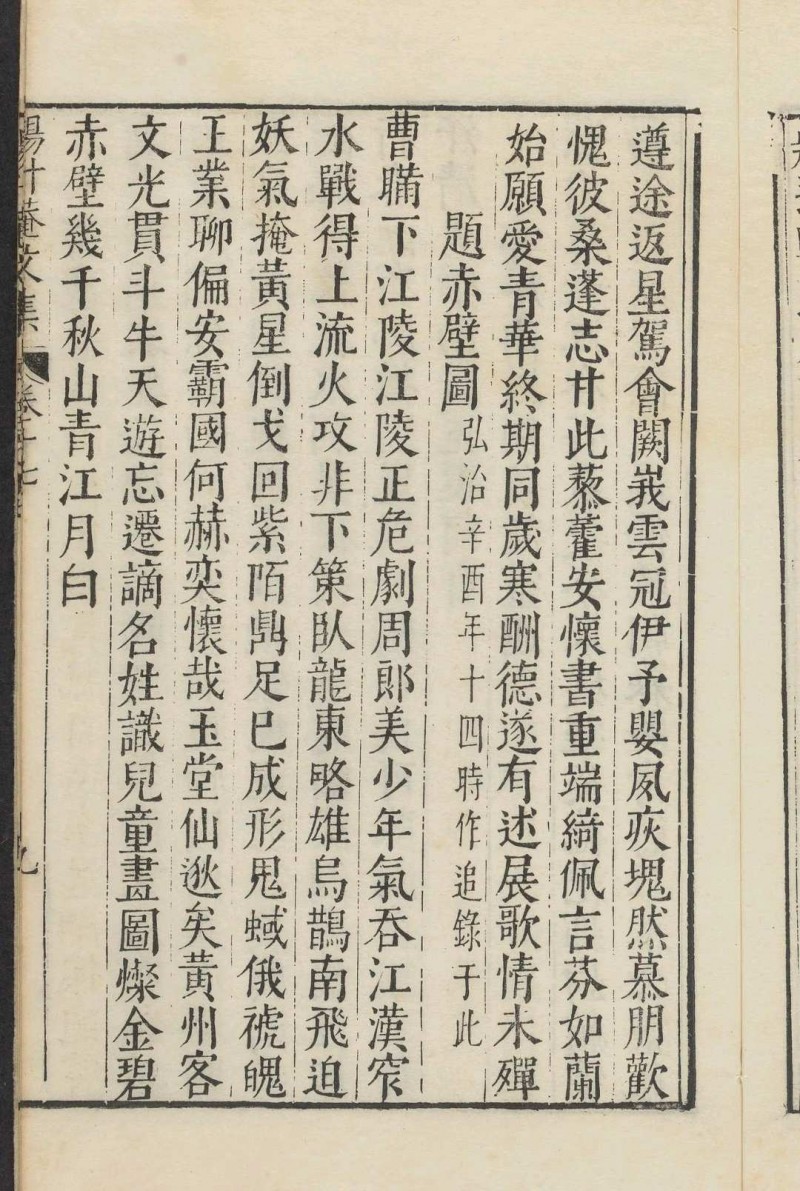 遵途返星駕會闕峩雲冠伊予嬰夙疢塊然慕朋歡
愧彼桑蓬志甘此藜藿安懷書重端綺佩言芬如蘭
始願愛青華終期同歲寒酬德遂有述展歌情未殫
題赤壁圖弘治辛酉年十四時作追錄于此
曹瞞下江陵江陵正危劇周郎美少年氣吞江漢窄
水戰得上流火攻非下策臥龍東略雄烏鵲南飛迫
妖氣掩黃星倒戈回紫陌鼎足已成形鬼蜮俄褫魄
王業聊偏安霸國何赫奕懷哉玉堂仙逖矣黃州客
文光貫斗牛天遊忘遷謫名姓識兒童畫圖燦金碧
赤壁幾千秋山青江月白
楊升菴文集 卷二十七 九